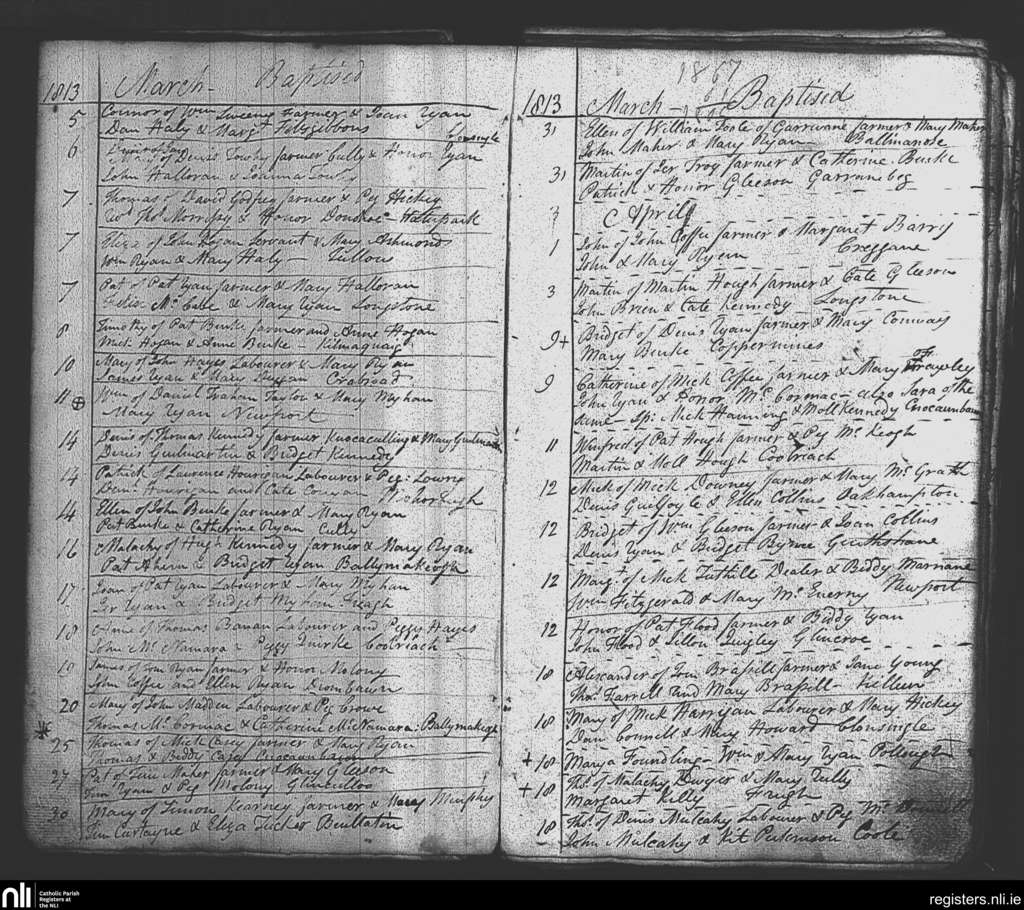 1813 March - Baptised
5 Connor of Wm Sweeney farmer & Joan Ryan
Dan Haly & Marg.t Fitzgibbons
Clonsingle
6 Mary of Denis Towhy farmer Cully & Honor Ryan
John Halloran & Joanna
7 Thomas of David Godfrey farmer & Peg Hickey
Wd Thos Morrisy & Honor Waterpark
7 Eliza of John Logan Servant & Mary Ashmond
Wm Ryan & Mary Haly - Tullow
7 Pat of Pat Ryan farmer & Mary Halloran
Felix McCabe & Mary Ryan Longstone
8 Timothy of Pat Burke farmer and Anne Hogan
Mich Hogan & Anne Burke -
10 Mary of John Hayes Labourer & Mary Ryan
James Ryan & Mary Duggan
11 Wm of Daniel Graham Taylor & Mary Meghan
Mary Ryan Newport
14 Denis of Thomas Kennedy farmer Knocaculling & Mary
Denis Guilmartin & Bridget Kennedy
14 Patrick of Laurence Hourigan Labourer & Peg Lowry
and Cate
14 Ellen of John Burke farmer & Mary Ryan
Pat Burke & Catherine Ryan Cully
16 Malachy of Hugh Kennedy farmer & Mary Ryan
Pat Ahern & Bridget Ryan Ballymakeogh
17 Joan of Pat Ryan Labourer & Mary Meghan
Ryan & Bridget
18 Anne of Thomas Labourer and Peggy Hayes
John McNamara & Peggy Quirke Coolriach
19 James of Ryan farmer & Honor Molony
John Coffee and Ellen Ryan Drombawn
20 Mary of John Madden Labourer & Peg Crowe
Thomas McCormac & Catherine McNamara - Ballymakeogh
25 Thomas of Mick Casey farmer & Mary Ryan
Thomas & Biddy Casey Cnocaunbawn
27 Pat of Maher farmer & Mary Gleeson
Ryan & Peg Molony Glinculloo
30 Mary of Simon Kearney farmer & Mary Murphy
& Eliza Tucker
1867
1813 March - Baptised
31 Ellen of William Toole of Garrivane farmer & Mary Maher
John Maher & Mary Ryan - Ballinanose
31 Martin of Jer Troy farmer & Catherine Burke
Patrick & Honor Gleeson Garranebeg
April
1 John of John Coffee farmer & Margaret Barry
John & Mary Ryan Creggane
3 Martin of Martin Hough farmer & Cate Gleeson
John Brien & Cate Kennedy Longstone
9 + Bridget of Denis Ryan farmer & Mary Conway
Mary Burke Coppermines
9 Catherine of Mick Coffee farmer & Mary Frawley
John Ryan & Honor McCormac - also Sara of the
same - Sp: Mick Hanning & Moll Kennedy Cnocaunbawn
11 Winfred of Pat Hough farmer & Peg McKeogh
Martin & Moll Hough Coolriach
12 Mick of Mick Downey farmer & Mary McGrath
Denis Guilfoyle & Ellen Collins Oakhampton
12 Bridget of Wm Gleeson farmer & Joan Collins
Denis Ryan & Bridget Byrne
12 Marg.t of Mick Tuthill Dealer & Biddy Marriane
Wm Fitzgerald & Mary McEnerny Newport
12 Honor of Pat Flood farmer & Biddy Ryan
John Flood & Quigley Glincroe
18 Alexander of Brassill farmer & Jane Young
Thos Farrell and Mary Brassill - Killeen
18 Mary of Mick Harrigan Labourer & Mary Hickey
Dan Connell & Mary Howard Clonsingle
+ 18 Mary a Foundling - Wm & Mary Ryan
+ 18 Thos of Malachy Dwyer & Mary Tully
Margaret Kelly
18 Thos of Denis Mulcahy Labourer & Peg
John Mulcahy & Kit Parkinson Coole
nli
Catholic Parish
Registers at
the NLI
registers.nli.ie